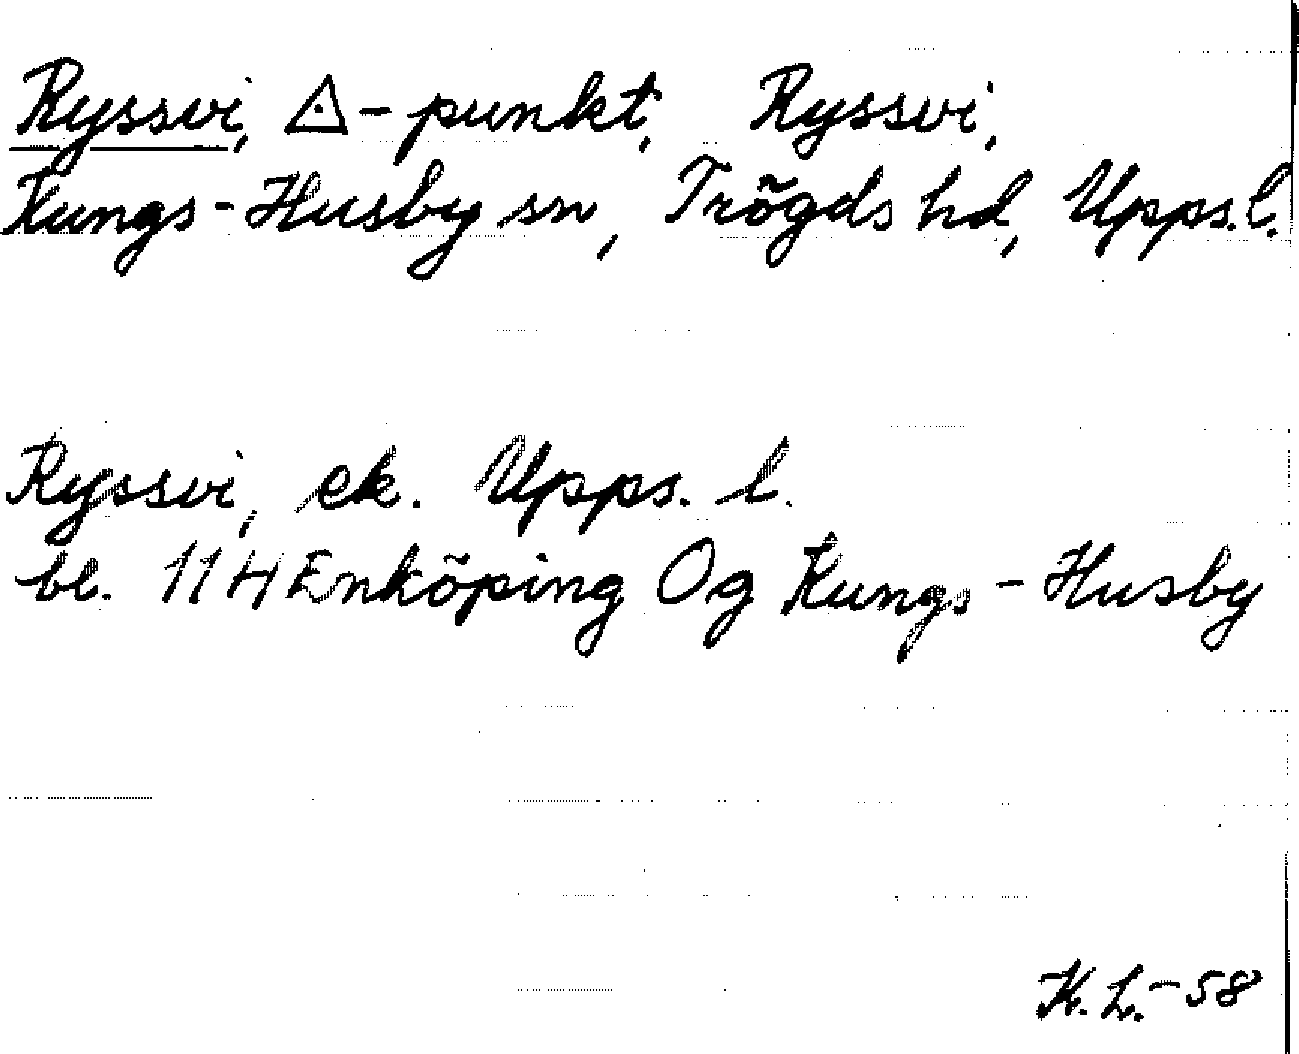 Ryssvi, △-punkt, Ryssvi,
Kungs-Husby sn, Trögds hd, Upps.l.
Ryssvi, ek. Upps. l.
bl. 114 Enköping Og Kungs-Husby
K.L.-58